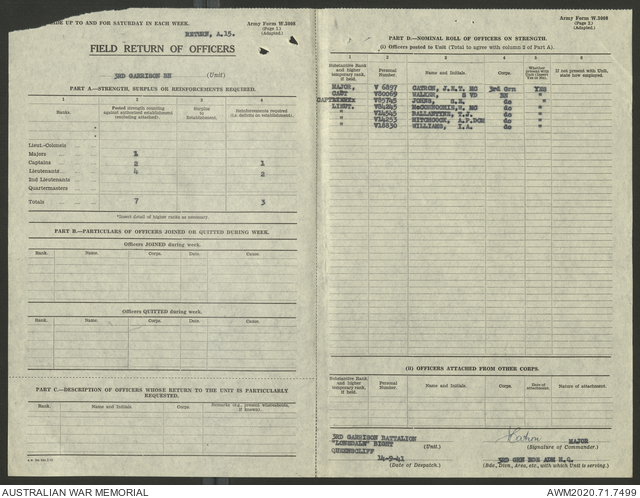 MADE UP TO AND FOR SATURDAY IN EACH WEEK.
Army Form W.3008
(Page 1.)
(Adapted.)
RETURN, A.15.
FIELD RETURN OF OFFICERS
3RD GARRISON BN (Unit)
PART A.—STRENGTH, SURPLUS OR REINFORCEMENTS REQUIRED.
1 2 3 4
Ranks. Posted strength counting against authorized establishment (excluding attached). Surplus to Establishment. Reinforcements required (i.e. deficits on establishment).
Lieut.-Colonels
Majors 1
Captains 2 1
Lieutenants 4 2
2nd Lieutenants
Quartermasters
Totals 7 3
*Insert detail of higher ranks as necessary.
PART B.—PARTICULARS OF OFFICERS JOINED OR QUITTED DURING WEEK.
Officers JOINED during week.
Rank. Name. Corps. Date. Cause.
Officers QUITTED during week.
Rank. Name. Corps. Date. Cause.
PART C.—DESCRIPTION OF OFFICERS WHOSE RETURN TO THE UNIT IS PARTICULARLY REQUESTED.
Rank. Name. Corps. Remarks (e.g., present whereabouts, if known).
Army Form W.3008
(Page 2.)
(Adapted.)
PART D.—NOMINAL ROLL OF OFFICERS ON STRENGTH.
(i) Officers posted to Unit (Total to agree with column 2 of Part A).
1 2 3 4 5 6
Substantive Rank and higher temporary rank, if held. Personal Number. Name and Initials. Corps. Whether present with Unit (Insert Yes or No). If not present with Unit, state how employed.
MAJOR, V 6897 CATRON, J.E.T. MC 3rd Grn YES
CAPT WALKER, S VD
JONES, do "
LIEUT. do "
" V14545 BALLANTINE, T.J. do "
" V14253 HITCHCOCK, A.P.DCM do "
" V18830 WILLIAMS, I.A. do "
(ii) OFFICERS ATTACHED FROM OTHER CORPS.
Substantive Rank and higher temporary rank, if held. Personal Number. Name and Initials. Corps. Date of Attachment. Nature of attachment.
3RD GARRISON BATTALION
"LONSDALE" BIGHT (Unit.)
QUEENSCLIFF
14-9-41
(Date of Despatch.)
MAJOR
(Signature of Commander.)
(Bde., Divn., Area, etc., with which Unit is serving.)
AUSTRALIAN WAR MEMORIAL
AWM2020.71.7499